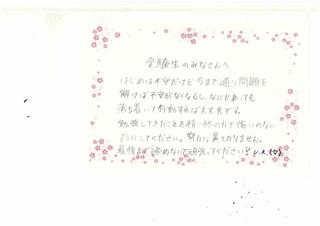 受験生のみなさんへ
はじめは不安だけど今まで通り問題を
解けば不安がなくなるし、なにがあっても
落ち着いて行動すれば大丈夫です。
勉強してきたことを精一杯の力で悔いのない
ようにしてください。努力は裏切りません。
最後まで諦めないで頑張ってください!